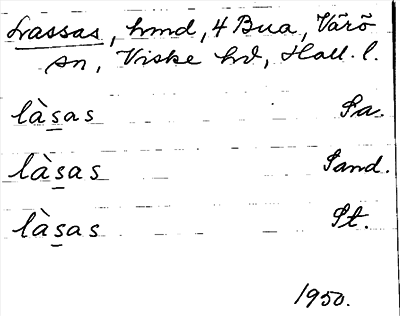 Lassas, hmd, 4 Bua, Värö
sn, Viske hd, Hall. l.
làs̲as Sa.
làs̲as Sand.
làs̲as St.
1950.